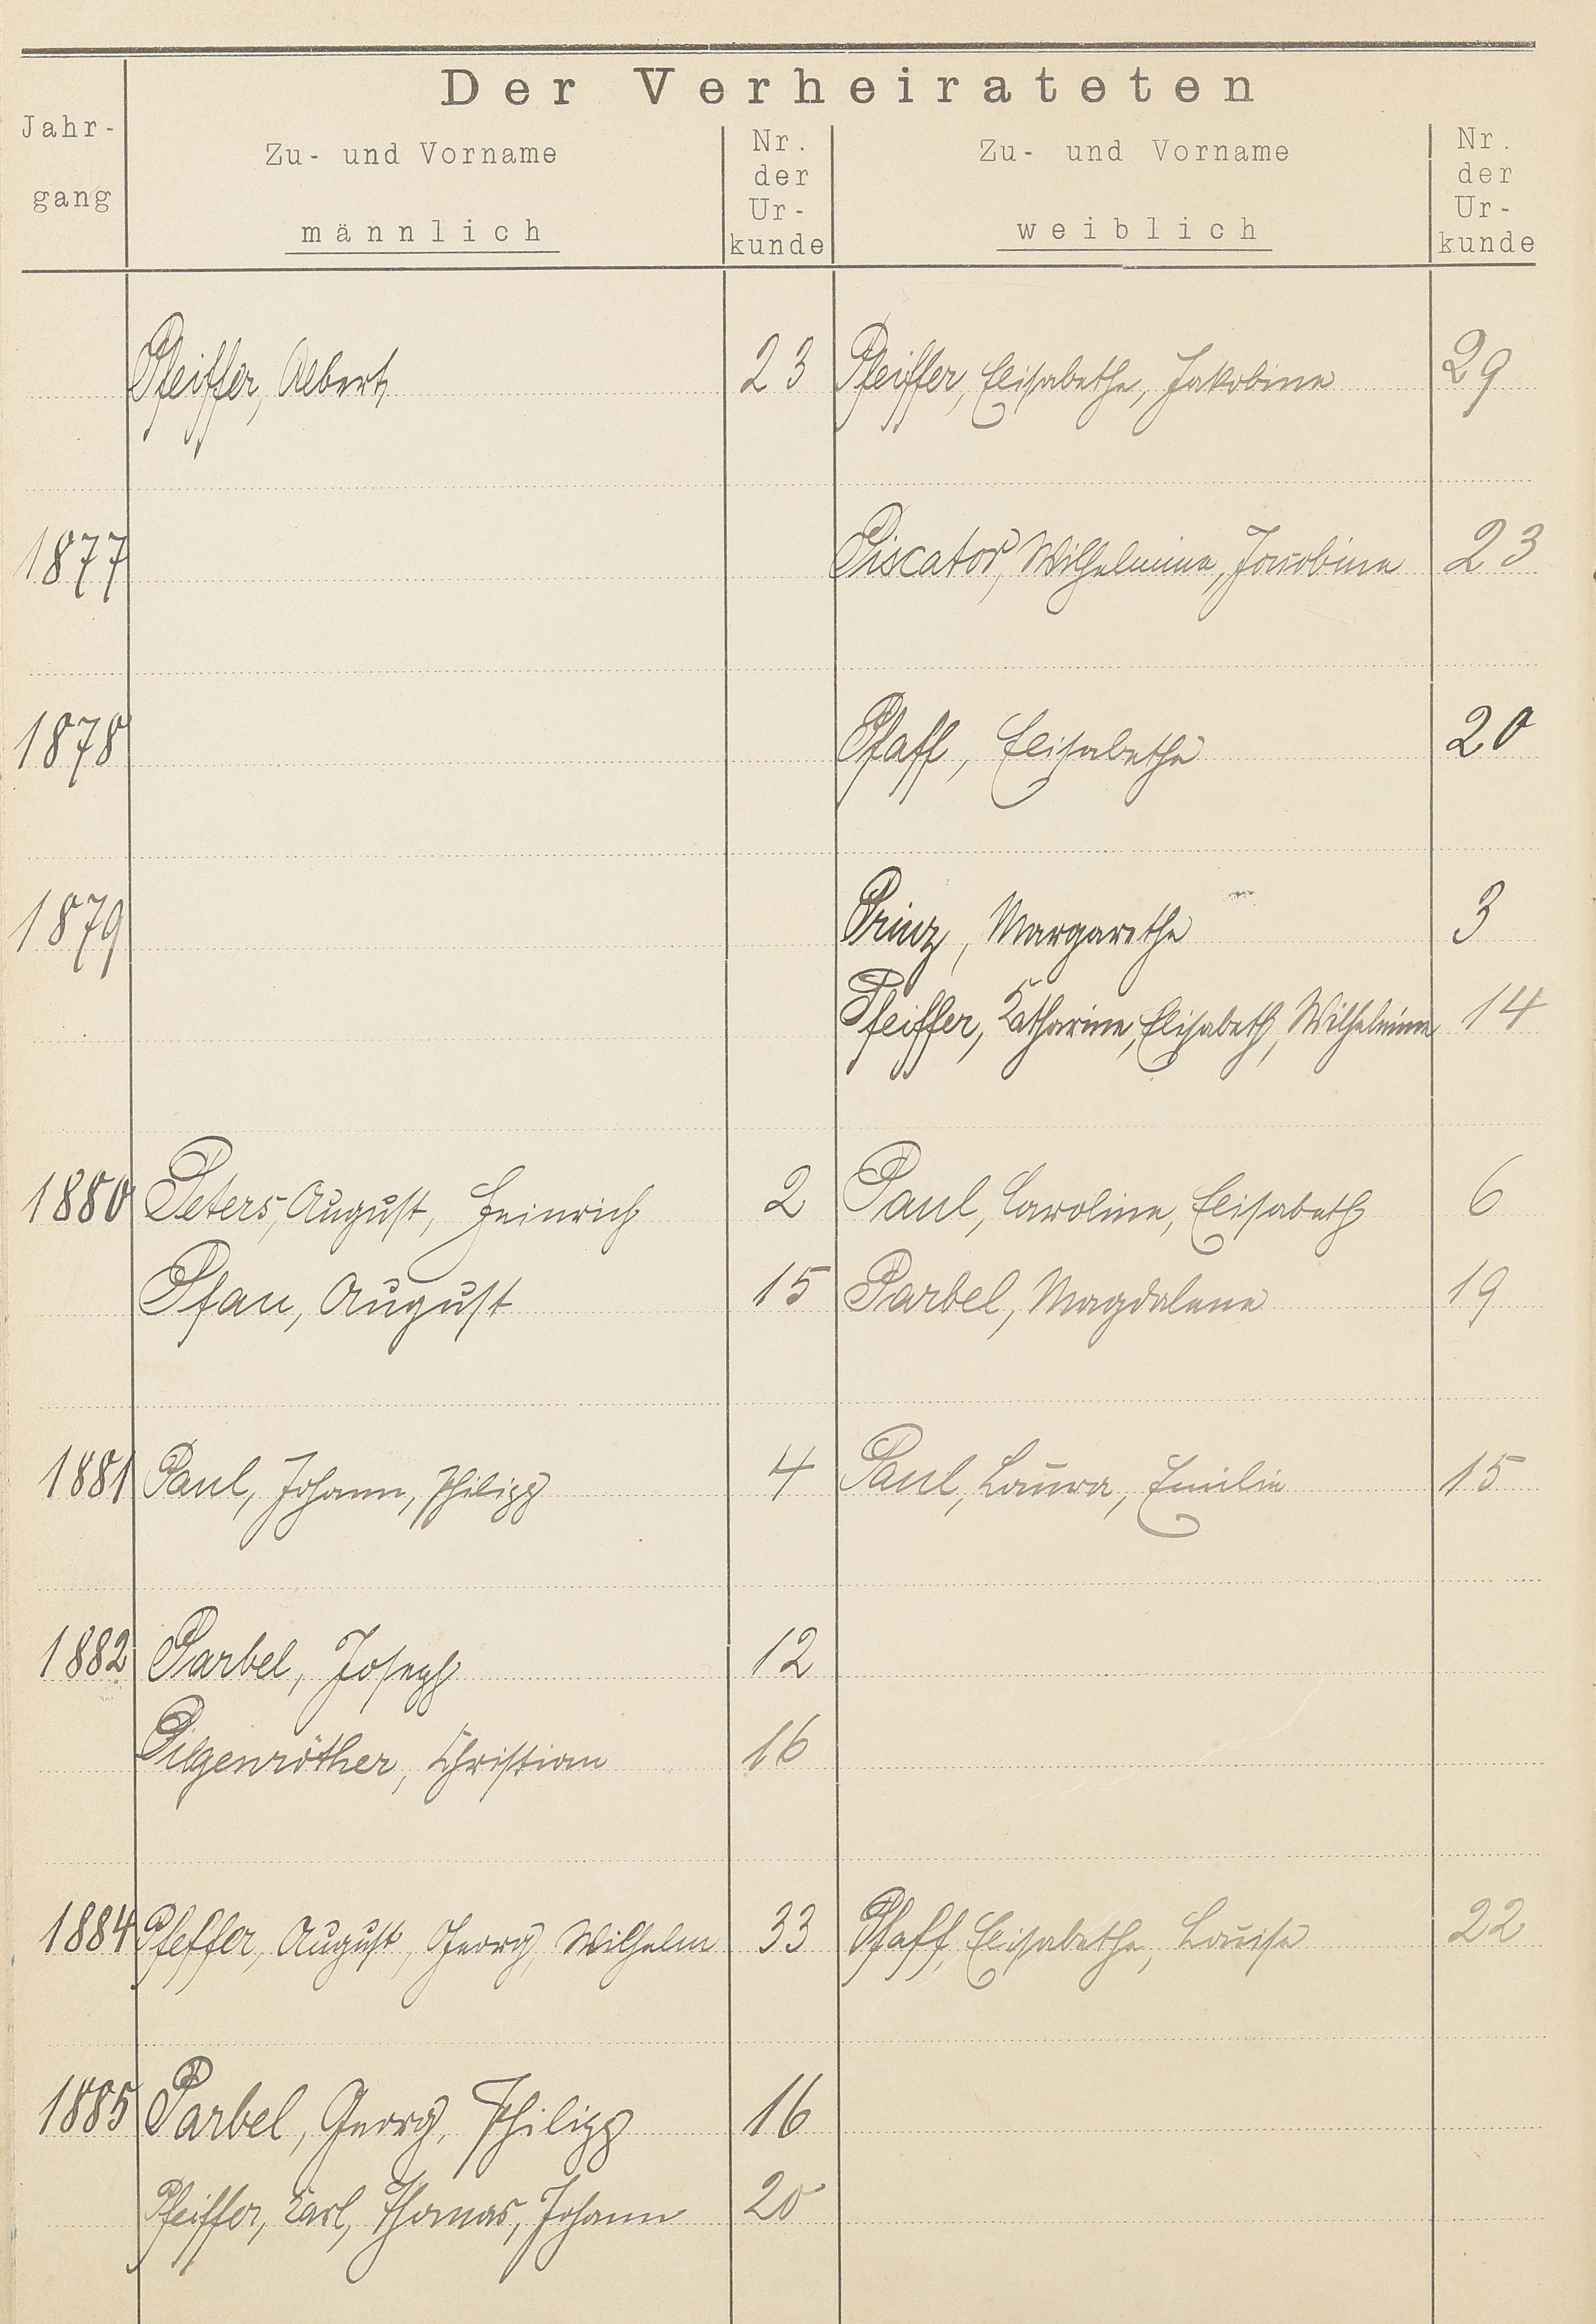 Der Verheirateten
Jahr-
gang
Zu- und Vorname
männlich
Nr.
der
Ur-
kunde
Zu- und Vorname
weiblich
Nr.
der
Ur-
kunde
Pfeiffer, Albert 23 Pfeiffer, Elisabethe, Jakobine 29
1877 Piscator, Wilhelmine, Jacobine 23
1878 Pfaff, Elisabethe 20
1879 Prinz, Margarethe 3
Pfeiffer, Katharine, Elisabeth, Wilhelmine 14
1880 Peters, August, Heinrich 2 Paul, Caroline, Elisabeth 6
Pfau, August 15 Parbel, Magdalene 19
1881 Paul, Johann, Philipp 4 Paul, Laura, Emilie 15
1882 Parbel, Joseph 12
Pilgenröther, Christian 16
1884 Pfeffer, August, Georg, Wilhelm 33 Pfaff, Elisabethe, Louise 22
1885 Parbel, Georg, Philipp 16
Pfeiffer, Karl, Thomas, Johann 20